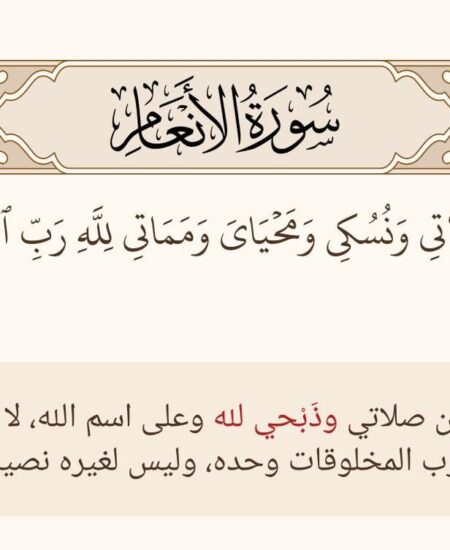 سُورَةُ الأَنْعَامِ
وَنُسُكِى وَمَحْيَاىَ وَمَمَاتِى لِلَّهِ رَبِّ
صلاتي وذَبْحي لله وعلى اسم الله، لا
المخلوقات وحده، وليس لغيره